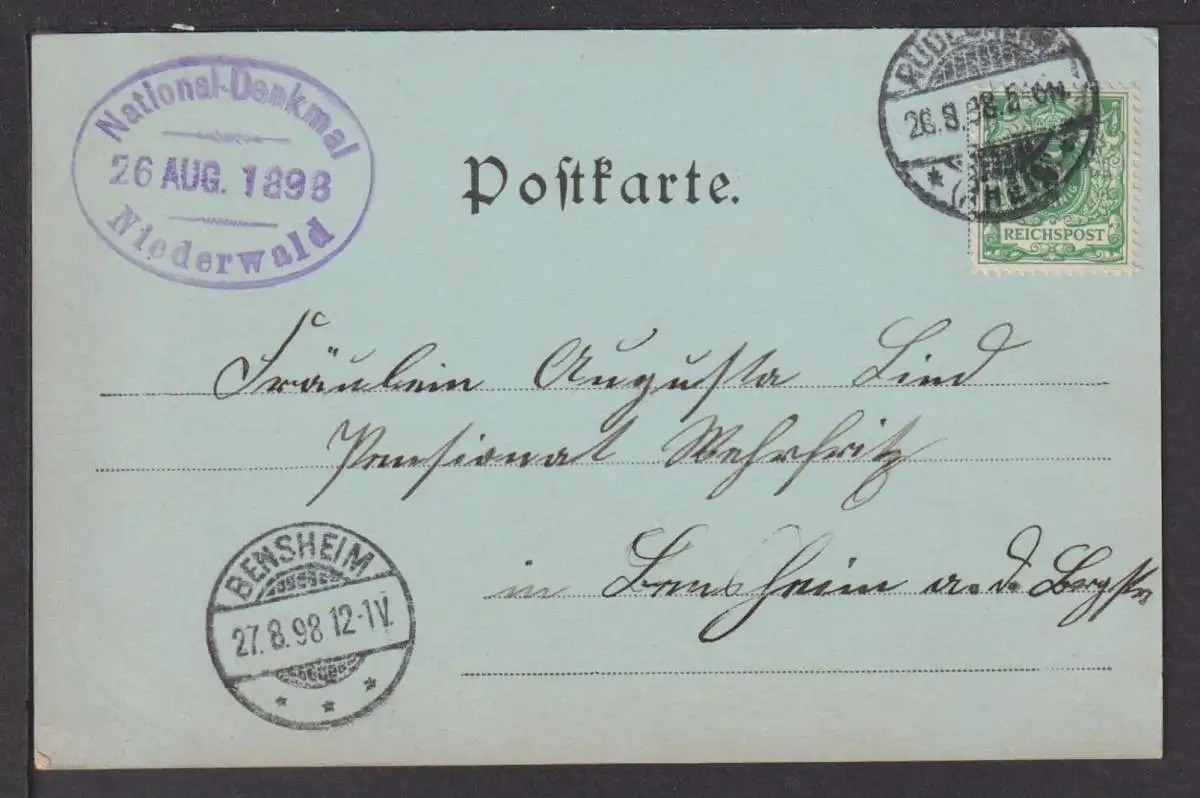 National-Denkmal
26 AUG. 1898
Niederwald
RÜDESHEIM
26.8.98. 5-6N.
(RHEIN)
REICHSPOST
Postkarte.
Fräulein Augusta Lind
Pensionat Wehrfritz
in Bensheim a. d. Bergstr
BENSHEIM
27.8.98 12-1V.